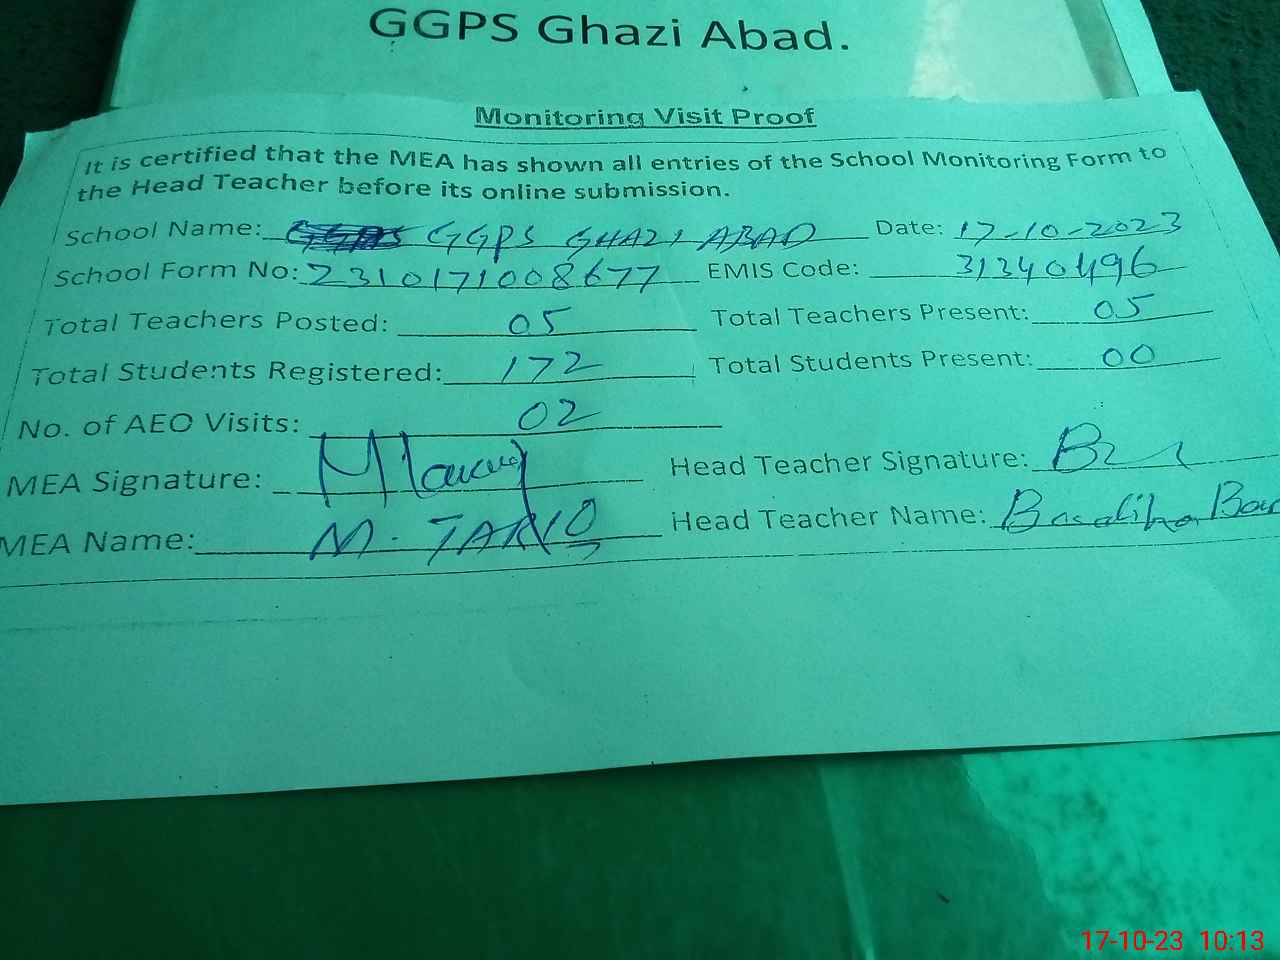 GGPS Ghazi Abad.
Monitoring Visit Proof
It is certified that the MEA has shown all entries of the School Monitoring Form to
the Head Teacher before its online submission.
School Name: GGPS GHAZI ABAD Date: 17-10-2023
School Form No: 2310171008677 EMIS Code: 31340496
Total Teachers Posted: 05 Total Teachers Present: 05
Total Students Registered: 172 Total Students Present: 00
No. of AEO Visits: 02
MEA Signature: Head Teacher Signature:
MEA Name: M. TARIQ Head Teacher Name:
17-10-23 10:13